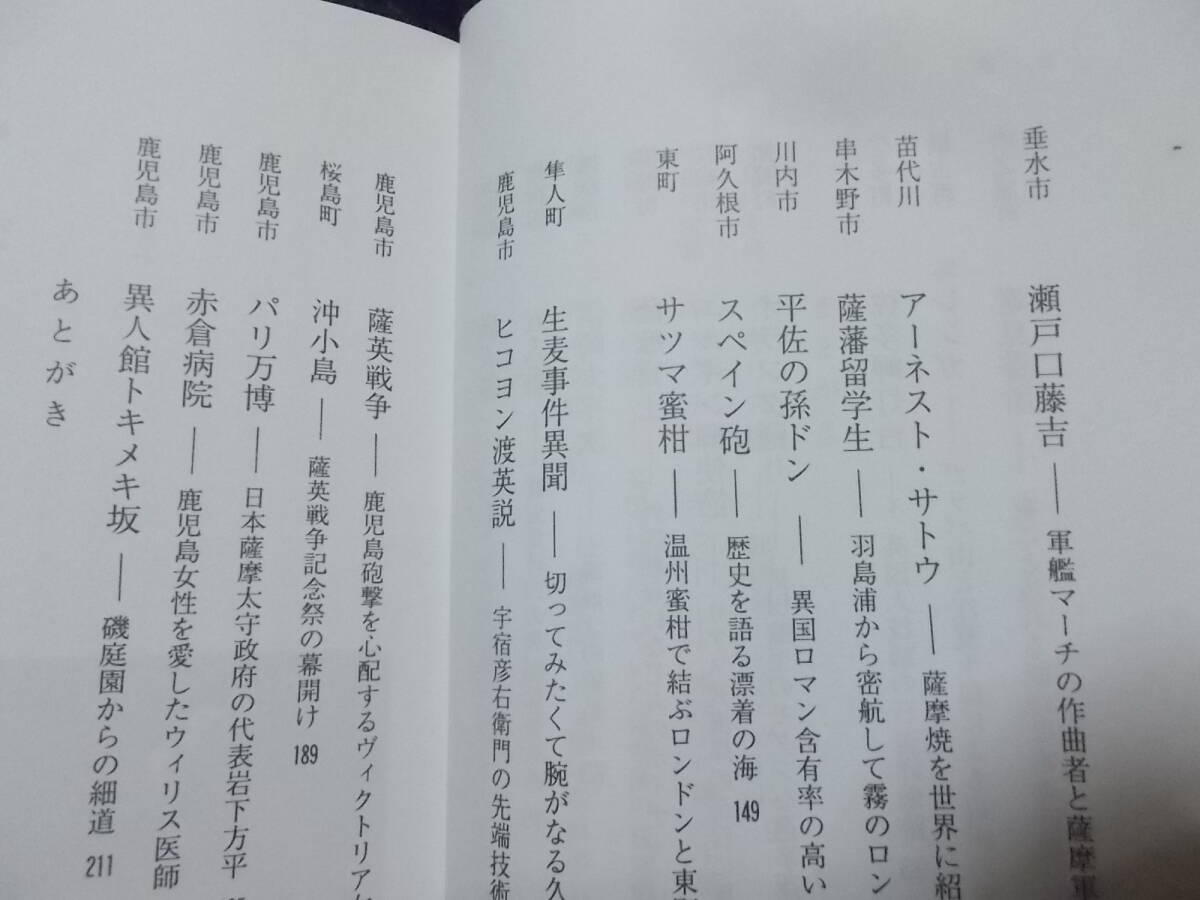 垂水市 瀬戸口藤吉──軍艦マーチの作曲者と薩摩軍
苗代川 アーネスト・サトウ──薩摩焼を世界に紹
串木野市 薩藩留学生──羽島浦から密航して霧のロン
川内市 平佐の孫ドン──異国ロマン含有率の高い
阿久根市 スペイン砲──歴史を語る漂着の海 149
東町 サツマ蜜柑──温州蜜柑で結ぶロンドンと東
隼人町 生麦事件異聞──切ってみたくて腕がなる久
鹿児島市 ヒコヨン渡英説──宇宿彦右衛門の先端技術
鹿児島市 薩英戦争──鹿児島砲撃を心配するヴィクトリア
桜島町 沖小島──薩英戦争記念祭の幕開け 189
鹿児島市 パリ万博──日本薩摩太守政府の代表岩下方平
鹿児島市 赤倉病院──鹿児島女性を愛したウィリス医師
鹿児島市 異人館トキメキ坂──磯庭園からの細道 211
あとがき